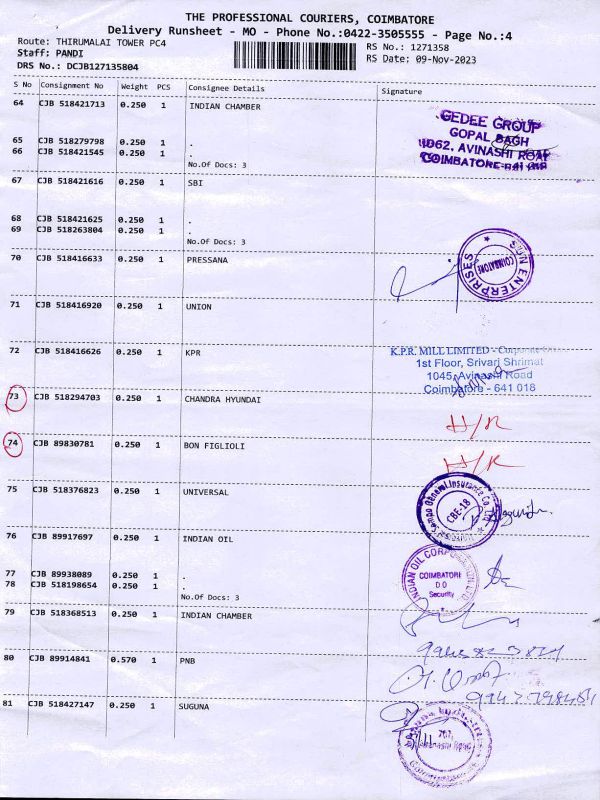 THE PROFESSIONAL COURIERS, COIMBATORE
Delivery Runsheet - MO - Phone No.:0422-3505555 - Page No.:4
Route: THIRUMALAI TOWER PC4
Staff: PANDI
DRS No.: DCJB127135804
RS No.: 1271358
RS Date: 09-Nov-2023
S No Consignment No Weight PCS Consignee Details Signature
64 CJB 518421713 0.250 1 INDIAN CHAMBER
GEDEE GROUP
GOPAL BAGH
1062, AVINASHI ROAD
65 CJB 518279798 0.250 1 .
66 CJB 518421545 0.250 1 .
No.Of Docs: 3
67 CJB 518421616 0.250 1 SBI
68 CJB 518421625 0.250 1 .
69 CJB 518263804 0.250 1 .
No.Of Docs: 3
70 CJB 518416633 0.250 1 PRESSANA
SUN ENTERPRISES
COIMBATORE
71 CJB 518416920 0.250 1 UNION
72 CJB 518416626 0.250 1 KPR
K.P.R. MILL LIMITED - Corporate
1st Floor, Srivari Shrimat
1045, Avinashi Road
Coimbatore - 641 018
73 CJB 518294703 0.250 1 CHANDRA HYUNDAI
H/R
74 CJB 89830781 0.250 1 BON FIGLIOLI
H/R
75 CJB 518376823 0.250 1 UNIVERSAL
General Insurance Co. Ltd
CBE-18
76 CJB 89917697 0.250 1 INDIAN OIL
INDIAN OIL CORPORATION LTD
COIMBATORE
D O
Security
77 CJB 89938089 0.250 1 .
78 CJB 518198654 0.250 1 .
No.Of Docs: 3
79 CJB 518368513 0.250 1 INDIAN CHAMBER
80 CJB 89914841 0.570 1 PNB
81 CJB 518427147 0.250 1 SUGUNA